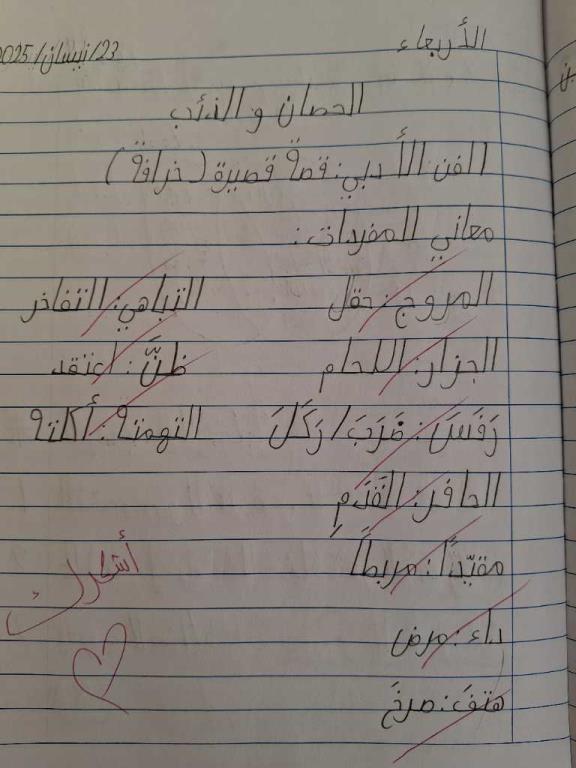 الأربعاء 23/نيسان/2025
الحصان والذئب
الفن الأدبي: قصة قصيرة (خرافة)
معاني المفردات:
المروج: حقل التباهي: التفاخر
الجزار: اللحام ظنَّ: اعتقد
رَفَسَ: ضَرَبَ/رَكَلَ التهمتة: أكلتة
الحافر: القَدَمِ
مقيّدًا: مربطاً
داء: مرض
هتفَ: صرخَ
أشكرك